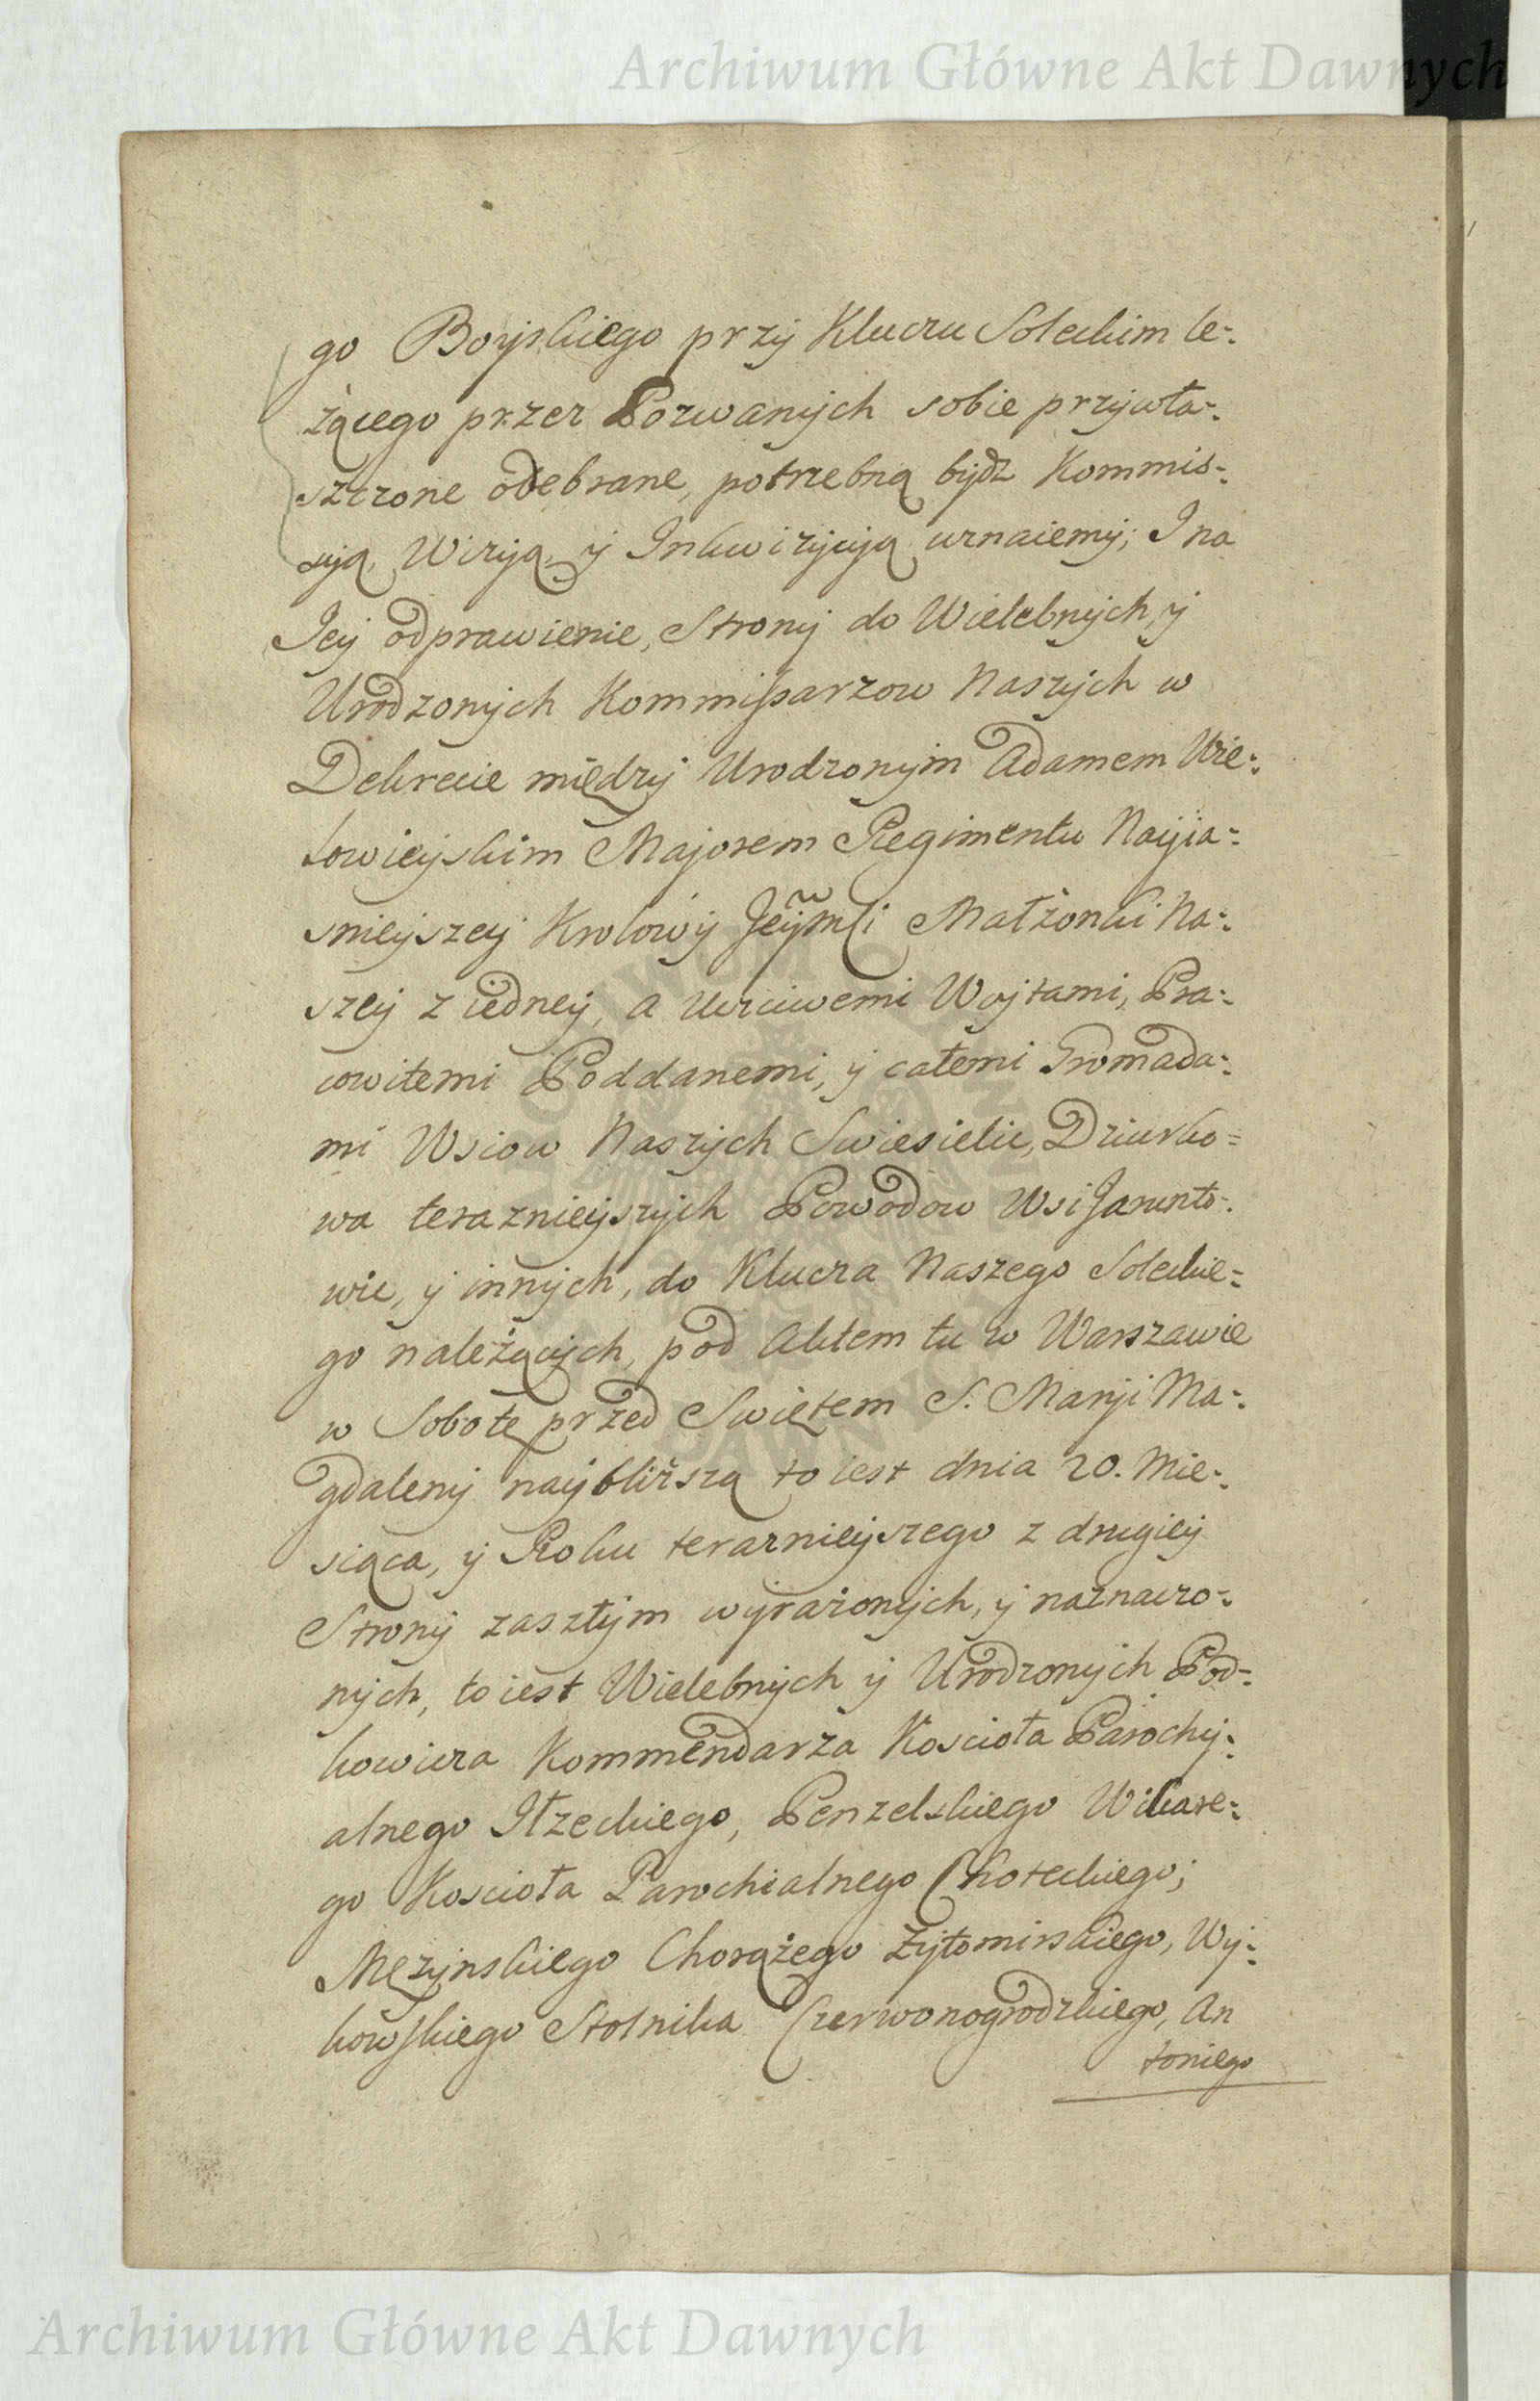 Archiwum Główne Akt Dawnych
go Boyskiego przy Kluczu Soleckim le-
żącego przez Pozwanych sobie przywła-
szczone odebrane, potrzebną bydź Kommis-
syią, Wizyą, y Inkwizycyią uznaiemy; I na
Jey odprawienie, Strony do Wielebnych, y
Urodzonych Kommissarzow Naszych w
Dekrecie między Urodzonym Adamem Wie-
lowieyskim Majorem Regimentu Nayia-
snieyszey Krolowy Jeymci Małżonki Na-
szey z iedney, a Uczciwemi Woytami, Pra-
cowitemi Poddanemi, y całemi Gromada-
mi Wsiow Naszych Swiesielic, Dziurko-
wa terazniejszych Powodow Wsi Jarento-
wic, y innych, do Klucza Naszego Soleckie-
go należących, pod Aktem tu w Warszawie
w Sobotę przed Swiętem S. Maryi Ma-
gdaleny nayblizszą to iest dnia 20. Mie-
siąca, y Roku teraznieyszego z drugiey
Strony zaszłym wyrażonych, y naznaczo-
nych, to iest Wielebnych y Urodzonych Pod-
kowicza Kommendarza Koscioła Parochy-
alnego Iłzeckiego, Penzelskiego Wikare-
go Koscioła Parochialnego Choteckiego;
Mężynskiego Chorążego Żytomirskiego, Wy-
kowskiego Stolnika Czerwonogrodzkiego, An
toniego
Archiwum Główne Akt Dawnych